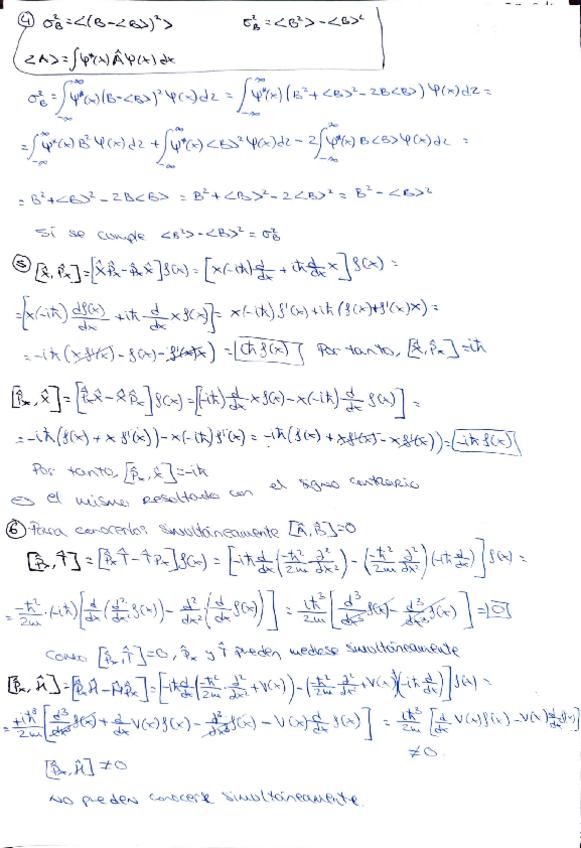 ④ σ_B² = <(B-<B>)²>    σ_B² = <B²> - <B>²
<A> = ∫ψ*(x) Â ψ(x) dx
σ_B² = ∫ψ*(x)(B-<B>)² ψ(x) dx = ∫ψ*(x)(B² + <B>² - 2B<B>) ψ(x) dx =
= ∫ψ*(x) B² ψ(x) dx + ∫ψ*(x) <B>² ψ(x) dx - 2∫ψ*(x) B<B> ψ(x) dx =
= B² + <B>² - 2B<B> = B² + <B>² - 2<B>² = B² - <B>²
Si se cumple <B²> - <B>² = σ_B²
⑤ [x̂, p̂x] = [x̂p̂x - p̂xx̂] f(x) = [x(-iħ) d/dx + iħ d/dx x] f(x) =
= [x(-iħ) df(x)/dx + iħ d/dx x f(x)] = x(-iħ) f'(x) + iħ (f(x) + f'(x)x) =
= -iħ (x f'(x) - f(x) - f'(x)x) = iħ f(x)    Por tanto, [x̂, p̂x] = iħ
[p̂x, x̂] = [p̂xx̂ - x̂p̂x] f(x) = [(-iħ) d/dx x f(x) - x(-iħ) d/dx f(x)] =
= -iħ (f(x) + x f'(x)) - x(-iħ) f'(x) = -iħ (f(x) + x f'(x) - x f'(x)) = -iħ f(x)
Por tanto, [p̂x, x̂] = -iħ
es el mismo resultado con el signo contrario
⑥ Para conocerlos simultáneamente [Â, B̂] = 0
[p̂x, T̂] = [p̂x T̂ - T̂ p̂x] f(x) = [-iħ d/dx (-ħ²/2m ∂²/∂x²) - (-ħ²/2m ∂²/∂x²)(-iħ d/dx)] f(x) =
= -ħ²/2m · (-iħ) [d/dx (d²/dx² f(x)) - d²/dx² (d/dx f(x))] = iħ³/2m [d³/dx³ f(x) - d³/dx³ f(x)] = 0
Como [p̂x, T̂] = 0, p̂x y T̂ pueden medirse simultáneamente
[p̂x, Ĥ] = [p̂xĤ - Ĥp̂x] = [-iħ d/dx (-ħ²/2m ∂²/∂x² + V(x)) - (-ħ²/2m ∂²/∂x² + V(x))(-iħ d/dx)] f(x) =
= +iħ³/2m [d³/dx³ f(x) + d/dx V(x) f(x) - d³/dx³ f(x) - V(x) d/dx f(x)] = iħ³/2m [d/dx V(x) f(x) - V(x) d/dx f(x)]
≠ 0
[p̂x, Ĥ] ≠ 0
No pueden conocerse simultáneamente.